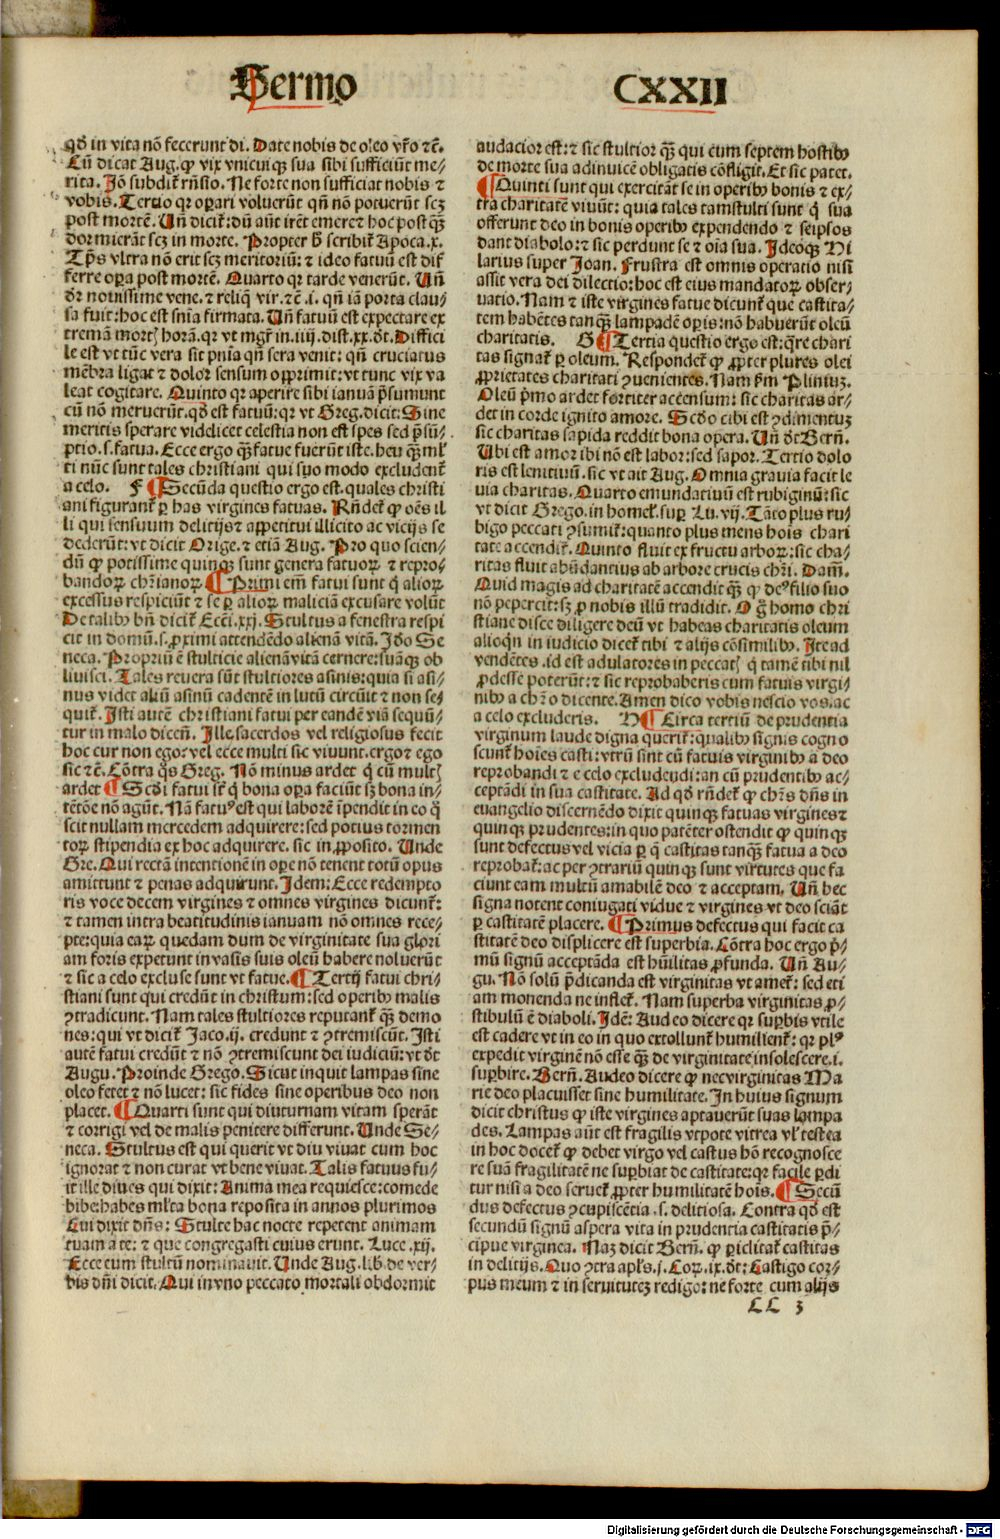 Sermo CXXII
qđ in vita nō fecerunt di. Date nobis de oleo vr̄o ⁊c̄.
Cū dicat Aug. ꝙ vix vnicuiqꝫ sua sibi sufficiūt me⸗
rita. Jō subdit̄ rn̄sio. Ne forte non sufficiat nobis ⁊
vobis. Tertio qr oꝑari voluerūt qn̄ nō potuerūt scꝫ
post mortē. Un̄ dicit̄: dū aūt irēt emere ⁊ hoc post qꝫ̄
dormierāt scꝫ in morte. Propter h̄ scribit̄ Apoca.x.
Tp̄s vltra nō erit scꝫ meritoriū: ⁊ ideo fatuū est dif
ferre oꝑa post mortē. Quarto qr tarde venerūt. Un̄
dr̄ nouissime vene. ⁊ reliq̄ vir. ⁊c̄ .i. qn̄ iā porta clau⸗
sa fuit: hoc est sn̄ia firmata. Un̄ fatuū est expectare ex
tremā mortꝭ horā. qr vt mgr̄ in.iiij. dist.xx. dt̄. Diffici
le est vt tūc vera sit pn̄ia qn̄ sera venit: qn̄ cruciatus
mēbra ligat ⁊ dolor sensum opprimit: vt tunc vix va
leat cogitare. Quinto qr aperire sibi ianuā p̄sumunt
cū nō meruerūt. qđ est fatuū: qr vt Greg. dicit: Sine
meritis sperare videlicet celestia non est spes sed p̄sū⸗
ptio. s. fatua. Ecce ergo qꝫ̄ fatue fuerūt iste. heu qꝫ̄ ml̄
ti nūc sunt tales christiani qui suo modo excludent̄
a celo. F ¶ Secūda questio ergo est. quales christi
ani figurant̄ ꝑ has virgines fatuas. Rn̄det̄ ꝙ oēs il
li qui sensuum delitijs ⁊ appetitui illicito ac vicijs se
dederūt: vt dicit Orige. ⁊ etiā Aug. Pro quo scien⸗
dū ꝙ potissime quinqꝫ sunt genera fatuoꝝ ⁊ repro⸗
bandoꝝ chr̄ianoꝝ. ¶ Primi em̄ fatui sunt q̇ alioꝝ
excessus respiciūt ⁊ se ꝑ alioꝝ maliciā excusare volūt
De talibꝰ bn̄ dicit̄ Ecci.xxj. Stultus a fenestra respi
cit in domū. s. ꝓximi attendēdo alienā vitā. Jdo Se
neca. Propriū ē stulticie alienā vitā cernere: suāqꝫ ob
liuisci. Tales reuera sūt stultiores asinis: quia si asi⸗
nus videt aliū asinū cadentē in lutū circūit ⁊ non se⸗
quit̄. Jsti autē christiani fatui per eandē viā sequū⸗
tur in malo dicen̄. Jlle sacerdos vel religiosus fecit
hoc cur non ego: vel ecce multi sic viuunt. ergo ⁊ ego
sic ⁊c̄. Cōtra q̄s Greg. Nō minus ardet q̇ cū multꝭ
ardet ¶ Scđi fatui st̄ q̇ bona oꝑa faciūt sꝫ bona in⸗
tētōe nō agūt. Nā fatuꝰ est qui laborē īpendit in eo q̄
scit nullam mercedem adquirere: sed potius tormen
toꝝ stipendia ex hoc adquirere. sic in ꝓposito. Unde
Gre. Qui rectā intentionē in oꝑe nō tenent totū opus
amittunt ⁊ penas adquirunt. Jdem: Ecce redempto
ris voce decem virgines ⁊ omnes virgines dicunt̄:
⁊ tamen intra beatitudinis ianuam nō omnes rece⸗
pte: quia eaꝝ quedam dum de virginitate sua glori
am foris expetunt in vasis suis oleū habere noluerūt
⁊ sic a celo excluse sunt vt fatue. ¶ Tertij fatui chri⸗
stiani sunt qui credūt in christum: sed operibꝰ malis
ꝯtradicunt. Nam tales stultiores reputant̄ qꝫ̄ demo
nes: qui vt dicit̄ Jaco.ij. credunt ⁊ ꝯtremiscūt. Jsti
autē fatui credūt ⁊ nō ꝯtremiscunt dei iudiciū: vt dt̄
Augu. Proinde Grego. Sicut inquit lampas sine
oleo fetet ⁊ nō lucet: sic fides sine operibus deo non
placet. ¶ Quarti sunt qui diuturnam vitam sperāt
⁊ corrigi vel de malis penitere differunt. Unde Se⸗
neca. Stultus est qui querit vt diu viuat cum hoc
ignorat ⁊ non curat vt bene viuat. Talis fatuus fu⸗
it ille diues qui dixit: Anima mea requiesce: comede
bibe: habes ml̄ta bona reposita in annos plurimos
Cui dixit dn̄s: Stulte hac nocte repetent animam
tuam a te: ⁊ que congregasti cuius erunt. Luce.xij.
Ecce eum stultū nominauit. Unde Aug. lib. de ver⸗
bis dn̄i dicit. Qui in vno peccato mortali obdormit
audacior est: ⁊ sic stultior qꝫ̄ qui cum septem hostibꝰ
de morte sua adinuicē obligatis cōfligit. Et sic patet.
¶ Quinti sunt qui exercitāt se in operibꝰ bonis ⁊ ex⸗
tra charitatē viuūt: quia tales tam stulti sunt q̇ sua
offerunt deo in bonis operibꝰ expendendo ⁊ seipsos
dant diabolo: ⁊ sic perdunt se ⁊ oīa sua. Jdeoqꝫ Hi
larius super Joan. Frustra est omnis operatio nisi
assit vera dei dilectio: hoc est eius mandatoꝝ obser⸗
uatio. Nam ⁊ iste virgines fatue dicunt̄ que castita⸗
tem habētes tanqꝫ̄ lampadē oꝑis: nō habuerūt oleū
charitatis. G ¶ Tertia questio ergo est: q̄re chari
tas signat̄ ꝑ oleum. Respondet̄ ꝙ ꝓpter plures olei
ꝓprietates charitati ꝯuenientes. Nam fm̄ Pliniuꝫ.
Oleū p̄mo ardet fortiter accensum: sic charitas ar⸗
det in corde ignito amore. Scđo cibi est ꝯdimentuꝫ
sic charitas sapida reddit bona opera. Un̄ dt̄ Bern̄.
Ubi est amor ibi nō est labor: sed sapor. Tertio dolo
ris est lenitiuū. sic vt ait Aug. Omnia grauia facit le
uia charitas. Quarto emundatiuū est rubiginū: sic
vt dicit Grego. in homel̄. suꝑ Lu.vij. Tāto plus ru⸗
bigo peccati ꝯsumit̄: quanto plus mens hoīs chari
tate accendit̄. Quinto fluit ex fructu arboꝝ: sic cha⸗
ritas fluit abūdantius ab arbore crucis chr̄i. Dam̄.
Quid magis ad charitatē accendit qꝫ̄ ꝙ deꝰ filio suo
nō pepercit: sꝫ ꝓ nobis illū tradidit. O g̊ homo chri
stiane disce diligere deū vt habeas charitatis oleum
alioqn̄ in iudicio dicet̄ tibi ⁊ alijs cōsimilibꝰ. Jte ad
vendētes. id est adulatores in peccatꝭ q̇ tamē tibi nil
ꝓdesse poterūt: ⁊ sic reprobaberis cum fatuis virgi⸗
nibꝰ a chr̄o dicente. Amen dico vobis nescio vos. ac
a celo excluderis. H ¶ Circa tertiū de prudentia
virginum laude digna querit̄: qualibꝰ signis cogno
scunt̄ hoīes casti: vtrū sint cū fatuis virginibꝰ a deo
reprobandi ⁊ e celo excludendi: an cū prudentibꝰ ac⸗
ceptādi in sua castitate. Ad qđ rn̄det̄ ꝙ chr̄s dn̄s in
euangelio discernēdo dixit quinqꝫ fatuas virgines ⁊
quinqꝫ prudentes: in quo patēter ostendit ꝙ quinqꝫ
sunt defectus vel vicia ꝑ q̄ castitas tanqꝫ̄ fatua a deo
reprobat̄: ac per ꝯtrariū quinqꝫ sunt virtutes que fa
ciunt eam multū amabilē deo ⁊ acceptam. Un̄ hec
signa notent coniugati vidue ⁊ virgines vt deo sciāt
ꝑ castitatē placere. ¶ Primus defectus qui facit ca
stitatē deo displicere est superbia. Cōtra hoc ergo p̄⸗
mū signū acceptāda est hūilitas ꝓfunda. Un̄ Au⸗
gu. Nō solū p̄dicanda est virginitas vt amet̄: sed eti
am monenda ne inflet̄. Nam superba virginitas ꝓ⸗
stibulū ē diaboli. Jdē: Audeo dicere qr suꝑbis vtile
est cadere vt in eo in quo extollunt̄ humilient̄: qr plꝰ
expedit virginē nō esse qꝫ̄ de virginitate insolescere. i.
suꝑbire. Bern̄. Audeo dicere ꝙ nec virginitas Ma
rie deo placuisset sine humilitate. Jn huius signum
dicit christus ꝙ iste virgines aptauerūt suas lampa
des. Lampas aūt est fragilis vtpote vitrea vl̄ testea
in hoc docet̄ ꝙ debet virgo vel castus hō recognosce
re suā fragilitatē ne suꝑbiat de castitate: qr facile ꝑdi
tur nisi a deo seruet̄ ꝓpter humilitatē hoīs. ¶ Secū
dus defectus ꝯcupiscētia .s. delitiosa. Contra qđ est
secundū signū aspera vita in prudentia castitatis p̄⸗
cipue virginea. Naꝫ dicit Bern̄. ꝙ ꝑiclitat̄ castitas
in delitijs. Quo ꝯtra apl̄s. j. Coꝝ.ix. dt̄: Castigo cor⸗
pus meum ⁊ in seruituteꝫ redigo: ne forte cum alijs
LL 3
Digitalisierung gefördert durch die Deutsche Forschungsgemeinschaft - DFG